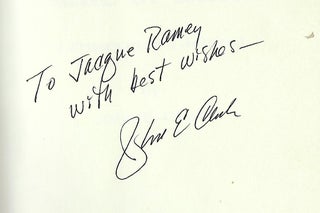 To Jacque Ramey
with best wishes—
E Clark